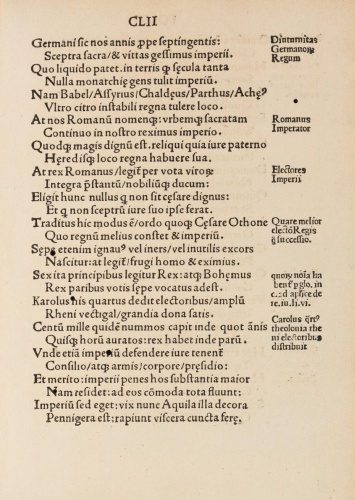 CLII
Germani sic nos annis ꝓpe septingentis:
Sceptra sacra/ & vittas gessimus imperii.
Quo liquido patet. in terris ꝙ sęcula tanta
Nulla monarchię gens tulit imperiū.
Nam Babel/ Assyrius/ Chaldęus/ Parthus/ Achęꝰ
Vltro citro instabili regna tulere loco.
At nos Romanū nomenqꝫ: vrbemqꝫ sacratam
Continuo in nostro reximus imperio.
Quodqꝫ magis dignū est. reliqui quia iure paterno
Hęred isqꝫ loco regna habuere sua.
At rex Romanus/ legit᷑ per vota viroꝝ
Integra p̄stantū/ nobiliūqꝫ ducum:
Eligit hunc nullus ꝗ non sit cęsare dignus:
Et ꝗ non sceptrū iure suo ipse ferat.
Traditus hic modus ē/ ordo quoqꝫ Cęsare Othone
Quo regnū melius constet & imperiū.
Sępe etenim ignauꝰ vel iners/ vel inutilis excors
Nascitur: at legit᷑/ frugi homo & eximius.
Sex ita principibus legitur Rex: atqꝫ Bohęmus
Rex paribus votis sępe vocatus adest.
Karolus his quartus dedit electoribus/ amplū
Rheni vectigal/ grandia dona satis.
Centū mille quidē nummos capit inde quot ānis
Quisqꝫ horū auratos: rex habet inde parū.
Vnde etiā imperiū defendere iure tenent᷑
Consilio/ atqꝫ armis/ corpore/ pręsidio:
Et merito: imperii penes hos substantia maior
Nam residet: ad eos cōmoda tota fluunt:
Imperiū sed eget: vix nunc Aquila illa decora
Pennigera est: rapiunt viscera cuncta ferę.
Diuturnitas
Germanoꝝ
Regum
Romanus
Imperator
Electores
Imperii
Quare melior
electō Regis
ꝗ̃ successio.
quoꝝ nōīa ha
bent᷑
c. ad apīce de
re. iu. li. vi.
Carolus q̄rtꝰ
theolonia rhe
ni electoribus
distribuit